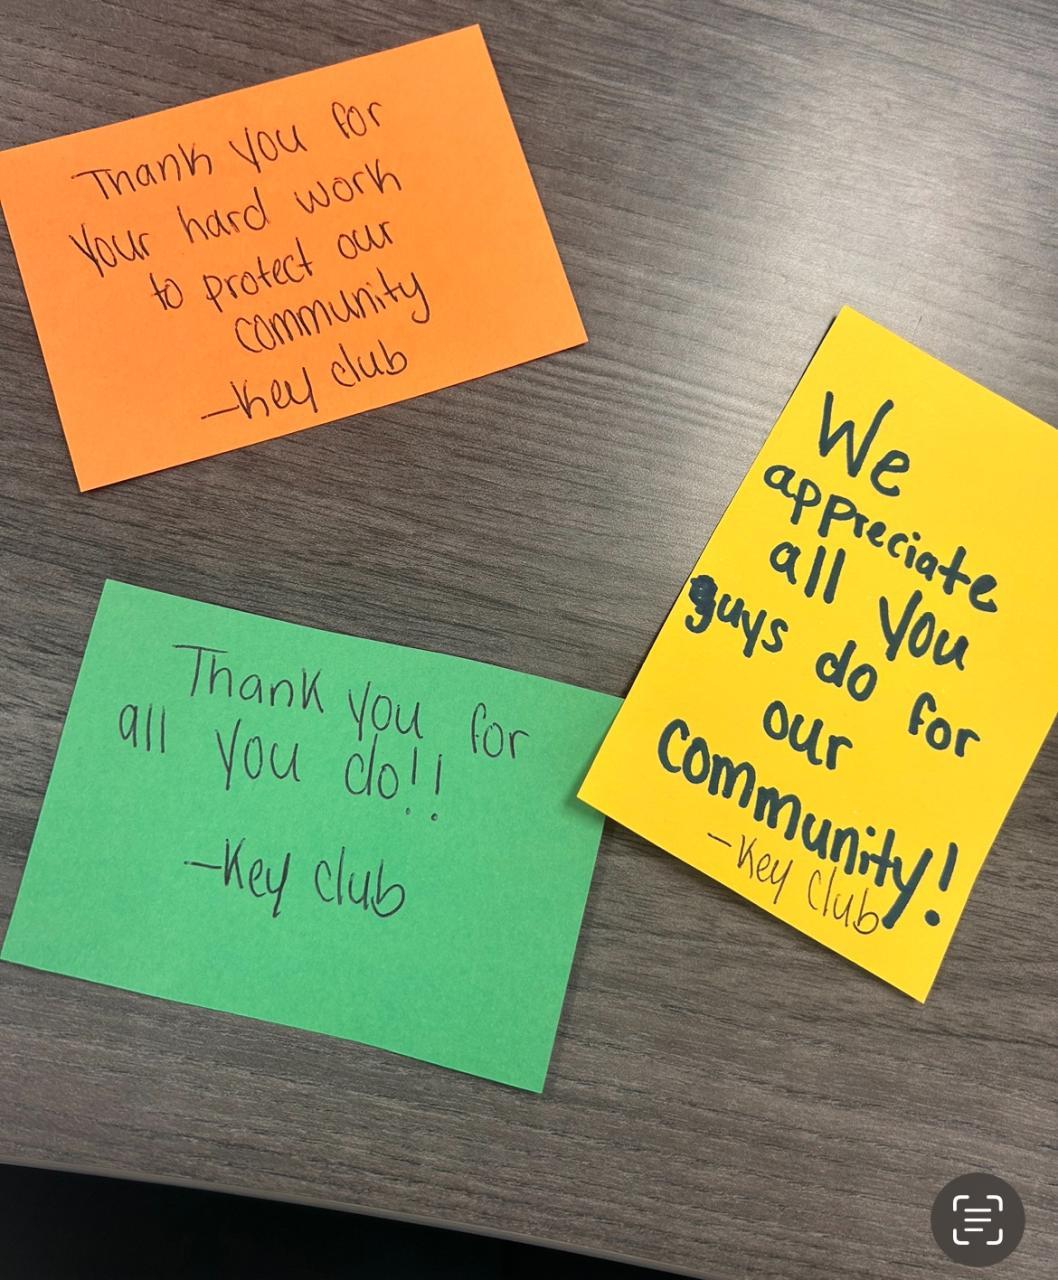 Thank you for
your hard work
to protect our
community
-Key club
We
appreciate
all you
guys do for
our
community!
-Key club
Thank you for
all you do!!
-Key club